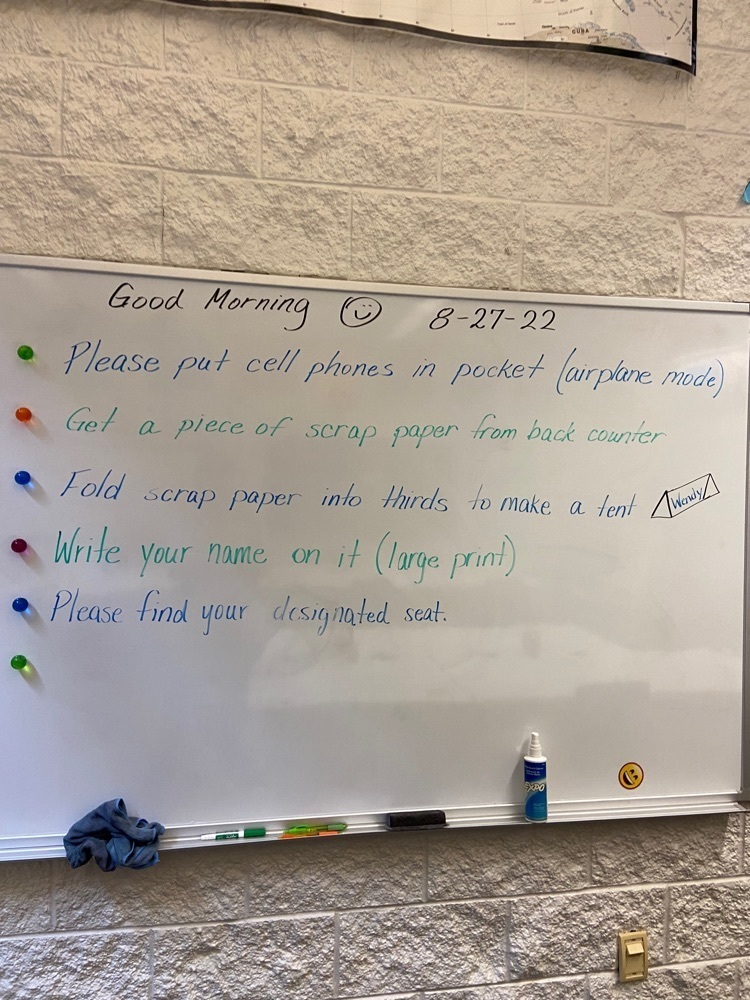 CUBA
Good Morning 8-27-22
Please put cell phones in pocket (airplane mode)
Get a piece of scrap paper from back counter
Fold scrap paper into thirds to make a tent Wendy
Write your name on it (large print)
Please find your designated seat.
EXPO